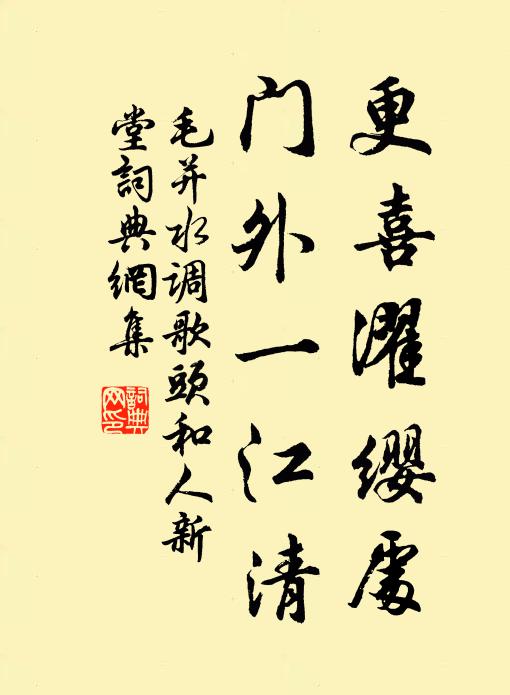 更喜濯缨處
门外一江清
毛并水调歌頭和人新
堂詞典網集
詞典
网印